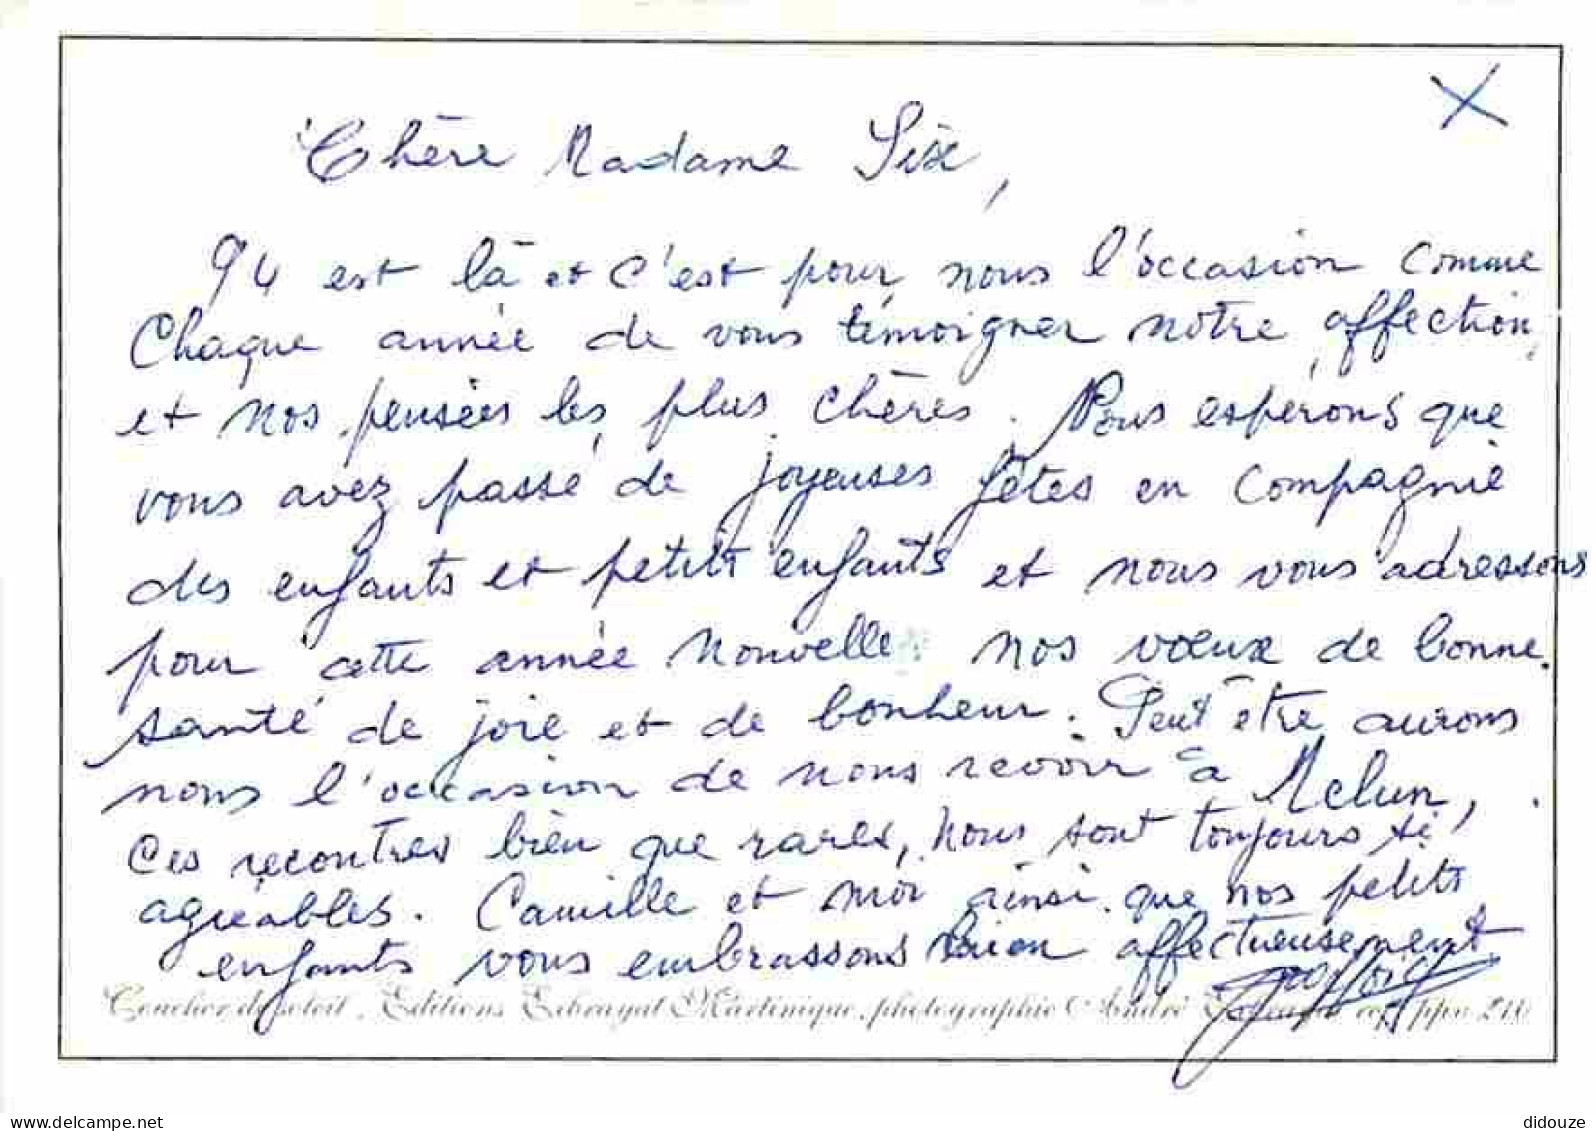 Chère Madame Six,
94 est là et c'est pour nous l'occasion comme
Chaque année de vous témoigner notre affection,
et nos pensées les plus chères. Nous espérons que
vous avez passé de joyeuses fêtes en compagnie
des enfants et petits enfants et nous vous adressons
pour cette année nouvelle nos vœux de bonne
santé de joie et de bonheur. Peut être aurons
nous l'occasion de nous revoir à Melun,
Ces recontres bien que rares, nous sont toujours si
agréables. Camille et moi ainsi que nos petits
enfants vous embrassons bien affectueusement
Coucher de soleil. Editions Exbrayat Martinique, photographie André
www.delcampe.net
didouze